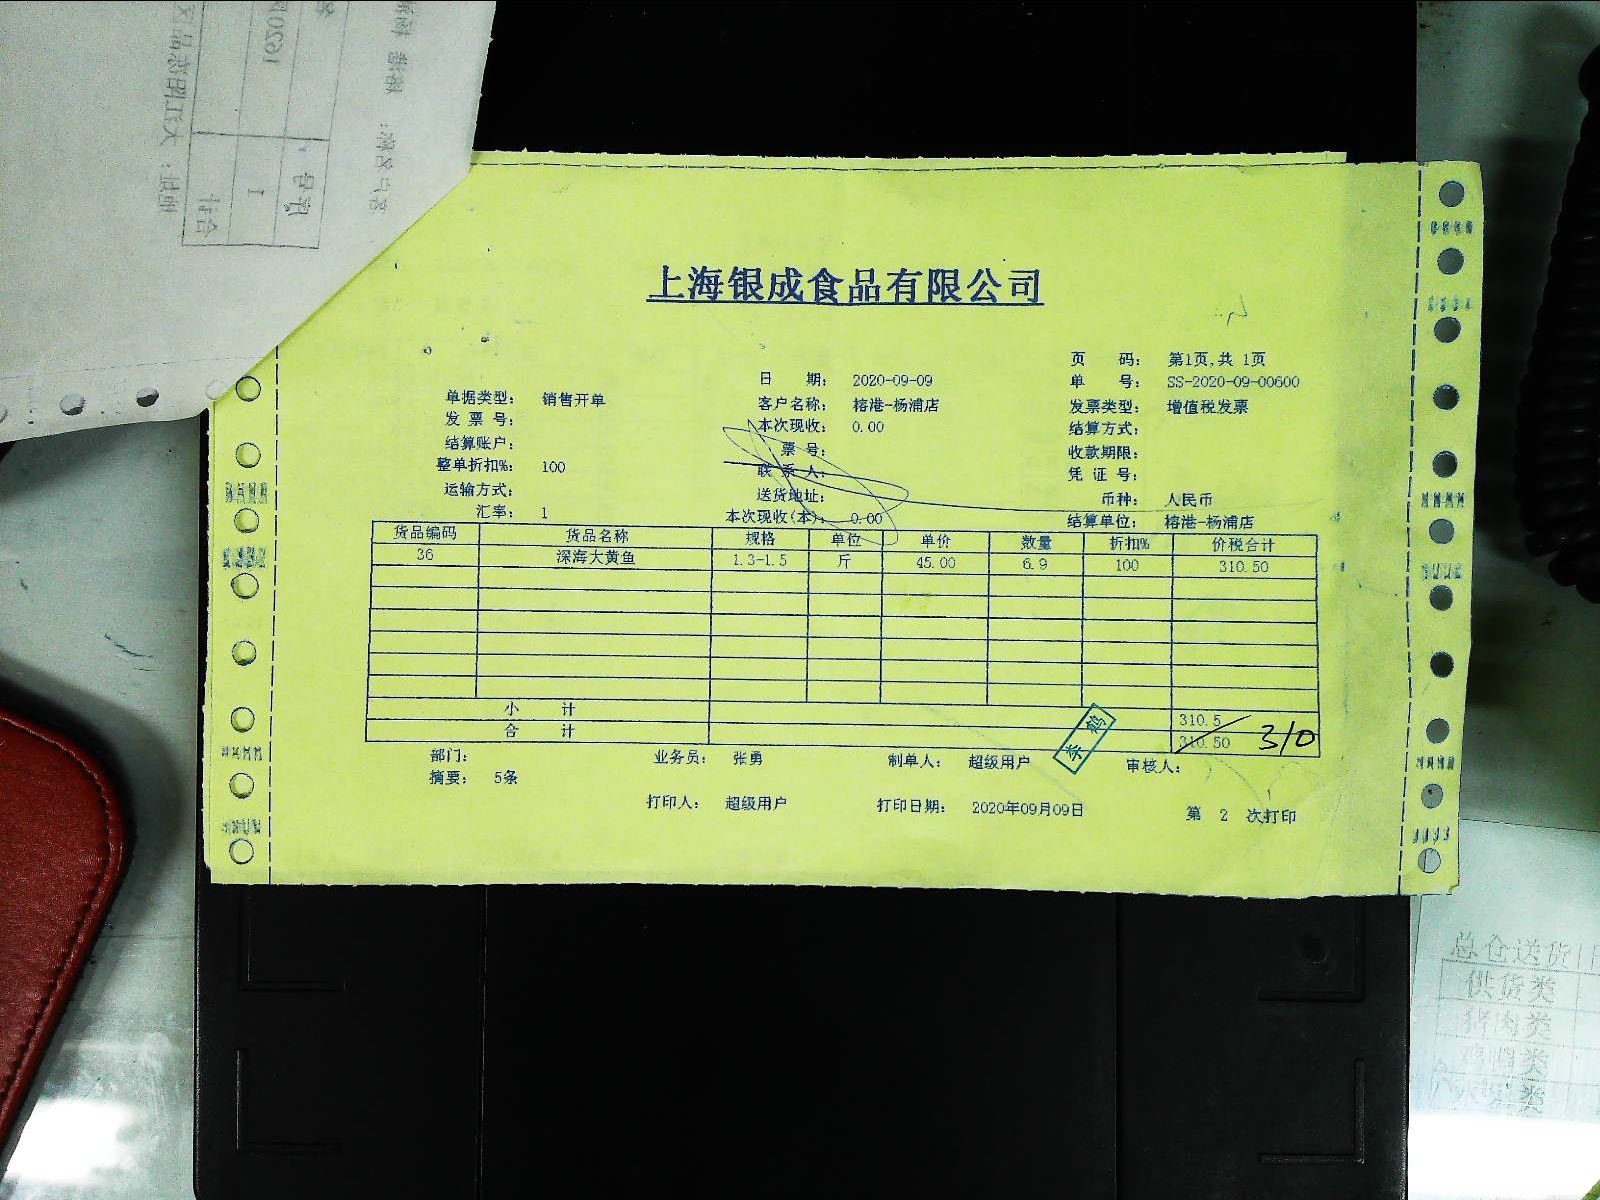 上海银成食品有限公司
页 码: 第1页,共 1页
日 期: 2020-09-09 单 号: SS-2020-09-00600
单据类型: 销售开单 客户名称: 榕港-杨浦店 发票类型: 增值税发票
发 票 号: 本次现收: 0.00 结算方式:
结算账户: 票 号: 收款期限:
整单折扣%: 100 联 系 人: 凭 证 号:
运输方式: 送货地址: 币种: 人民币
汇率: 1 本次现收(本): 0.00 结算单位: 榕港-杨浦店
货品编码 货品名称 规格 单位 单价 数量 折扣% 价税合计
36 深海大黄鱼 1.3-1.5 斤 45.00 6.9 100 310.50
小 计 310.5
合 计 310.50 310
部门: 业务员: 张勇 制单人: 超级用户 审核人:
摘要: 5条
打印人: 超级用户 打印日期: 2020年09月09日 第 2 次打印
总仓送货
供货类
猪肉类
鸡鸭类